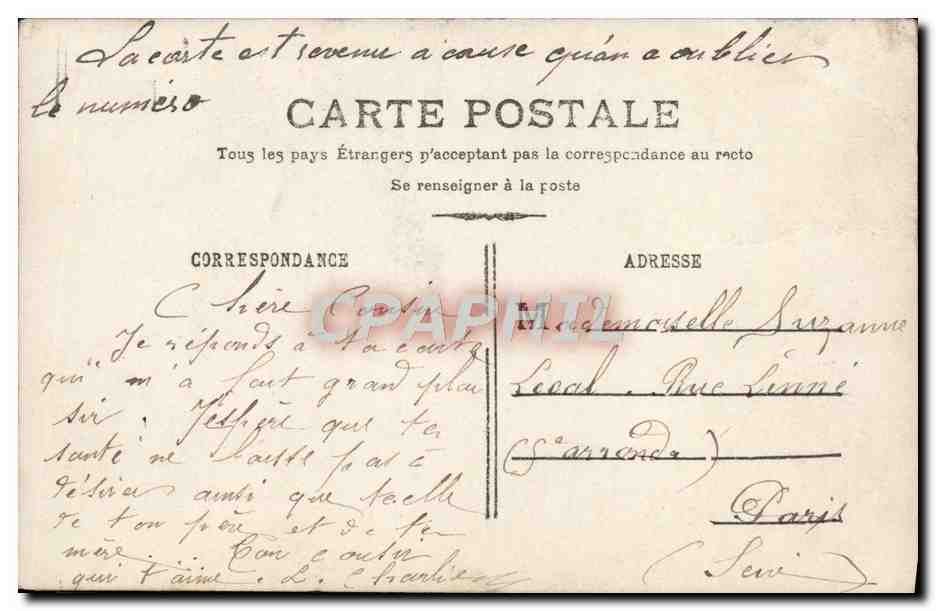 La carte est revenu a cause qu'on a oublier
le numero
CARTE POSTALE
Tous les pays Étrangers n'acceptant pas la correspondance au recto
Se renseigner à la poste
CORRESPONDANCE
Chère Cousine
Je réponds a ta carte
qui m'a fait grand plai
sir. J'espère que ta
santé ne laisse pas à
désirer ainsi que celle
de ton père et de ta
mère. Ton cousin
qui t'aime. L. Charlie
ADRESSE
Mademoiselle Suzanne
Rue Linné
(5e arrond)
Paris
(Seine)
CPAPHIL